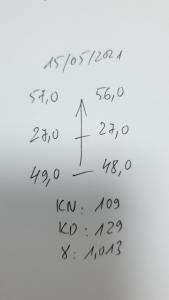 15/05/2021
57,0 56,0
27,0 27,0
49,0 48,0
KN: 109
KD: 129
γ: 1,013